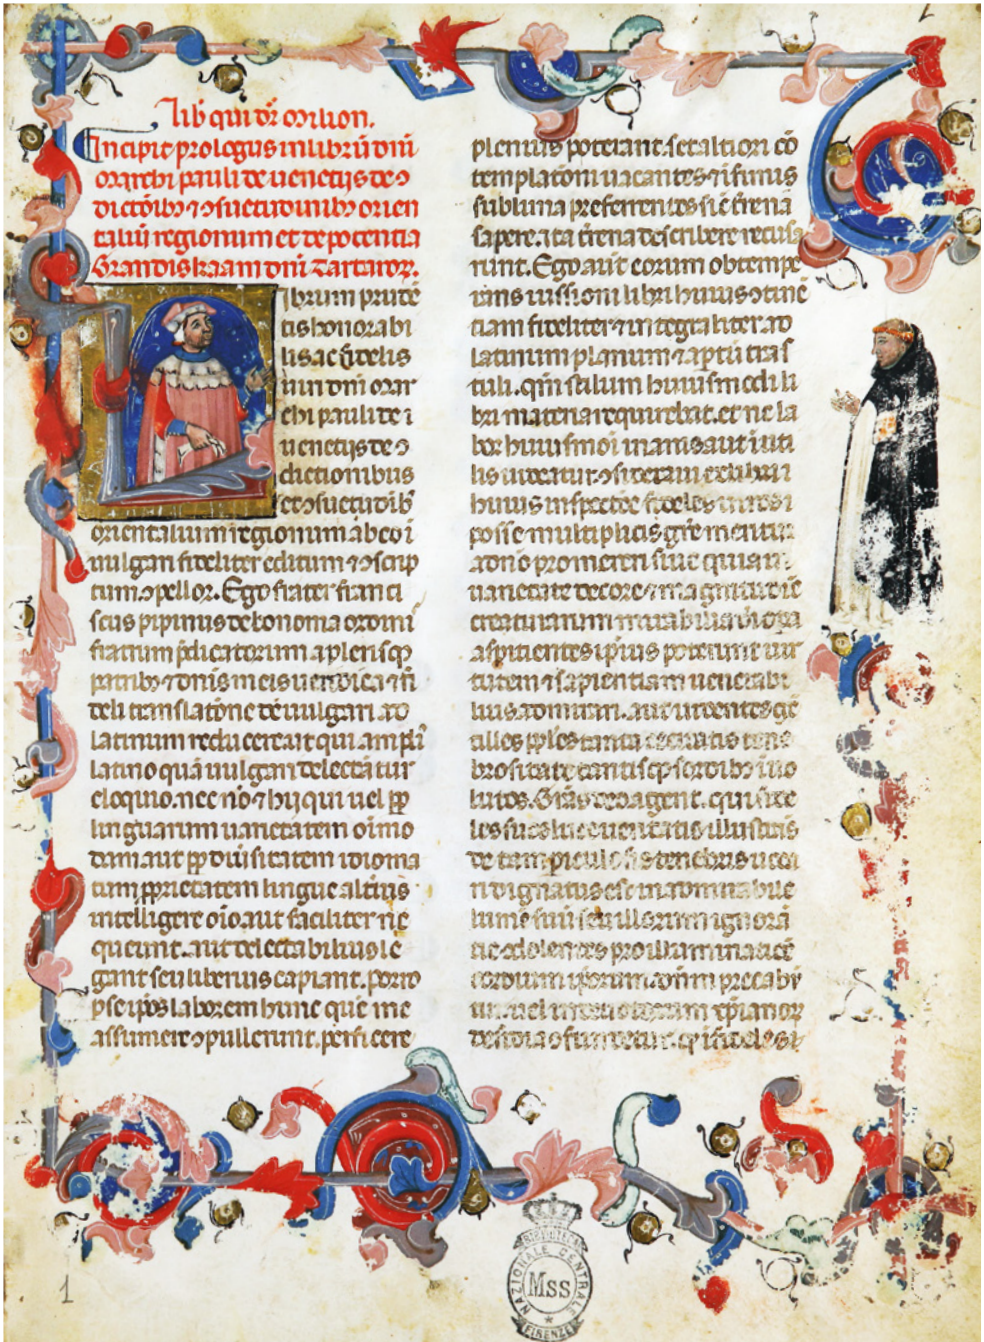 lib qui dr̄ milion.
Incipit prologus in librū dnī
marchi pauli de uenetijs de ꝯ
dictōibꝫ ⁊ ꝯsuetudinibꝫ orien
taliū regionum et de potentia
Grandis kaam dnī tartaroꝝ.
Librum prudē
tis honorabi
lis ac fidelis
uiri dnī mar
chi pauli de i
uenetijs de ꝯ
dictionibus
et ꝯsuetudībꝫ
orientalium regionum ab eo ī
uulgari fideliter editum ⁊ ꝯscip
tum ꝯpellor. Ego frater franci
scus pipinus de bononia ordinī
fratrum p̄dicatorum a plerisqꝫ
patribꝫ ⁊ dnīs meis ueridica ⁊ fi
deli translatōne de uulgari ad
latinum reducere. ut qui ampli
latino quā uulgari delectātur
eloquio. nec nō ⁊ hij qui uel ꝓp
linguarum uarietatem oīmo
dam. aut ꝓp diu̓sitatem idioma
tum ꝓprietatem lingue alterius
intelligere oīo aut faciliter ne
queunt. aut delectabilius le
gant seu liberius capiant. porro
ꝑ seip̄os laborem hunc quē me
assumere ꝯpulerunt. perficere
plenius poterant. set altiori cō
templatōni uacantes ⁊ īfimis
sublimia preferentes sic t̓rena
sapere. ita t̓rena describere recusa
runt. Ego aut̄ eorum obtempe
rans iussioni libri huius ꝯtinē
tiam fideliter ⁊ integraliter ad
latinum planum ⁊ aptū trās
tuli. qm̄ stilum huiusmodi li
bri materia requirebat. et ne la
bor huiusmōi inanis aut īuti
lis uideatur. ꝯsideraui ex libri
huius inspectōe fideles uiros
posse multiplicis gr̄e meritū
a dnō promereri siue quia in
uarietate decore ⁊ magnitudīe
creaturarum mirabilia dei opa
aspicientes ipsius poterunt uir
tutem ⁊ sapientiam uenerabi
liter admirari. aut uidentes gē
tiles ppl̄os tanta cecitatis tene
brositate tantisqꝫ sordibꝫ īuo
lutos. Grās deo agent. qui fide
les suos luce ueritatis illustrās
de tam ꝑiculosis tenebris uoca
re dignatus est in admirabile
lumē suū seu illorum ignorā
tie ꝯdolentes pro illuminatōe
cordium ipsorum. dnm̄ precabū
tur. uel indeuotorum xp̄ianoꝝ
desidia ꝯfundetur. qꝫ īfideles
1
BIBLIOTECA
NAZIONALE CENTRALE
Mss
FIRENZE